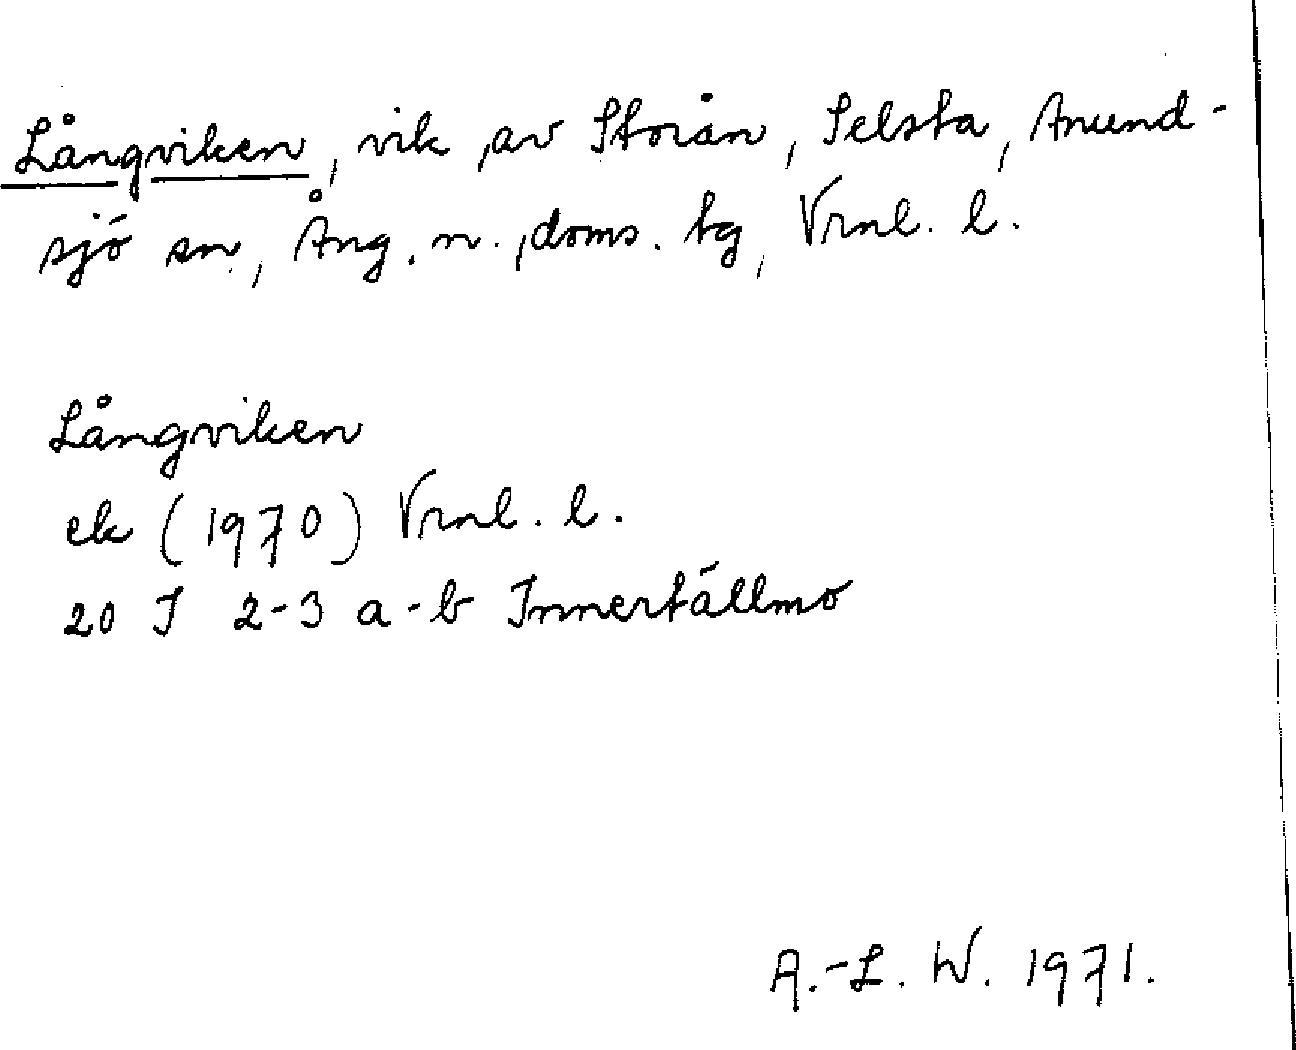 Långviken, vik av Storån, Selsta, Anund-
sjö sn, Ång. n., doms. tg, Vrnl. l.
Långviken
ek (1970) Vrnl. l.
20 J 2-3 a-b Innertällmo
A.-L. W. 1971.